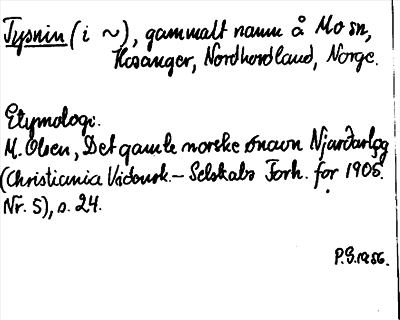 Tysnin (i ~), gammalt namn å Mo sn,
Hosanger, Nordhordland, Norge.
Etymologi.
M. Olsen, Det gamle norske ønavn Njarðarlǫg
(Christiania Vidensk.-Selskabs Forh. for 1905.
Nr. 5), s. 24.
P.S. 1956.